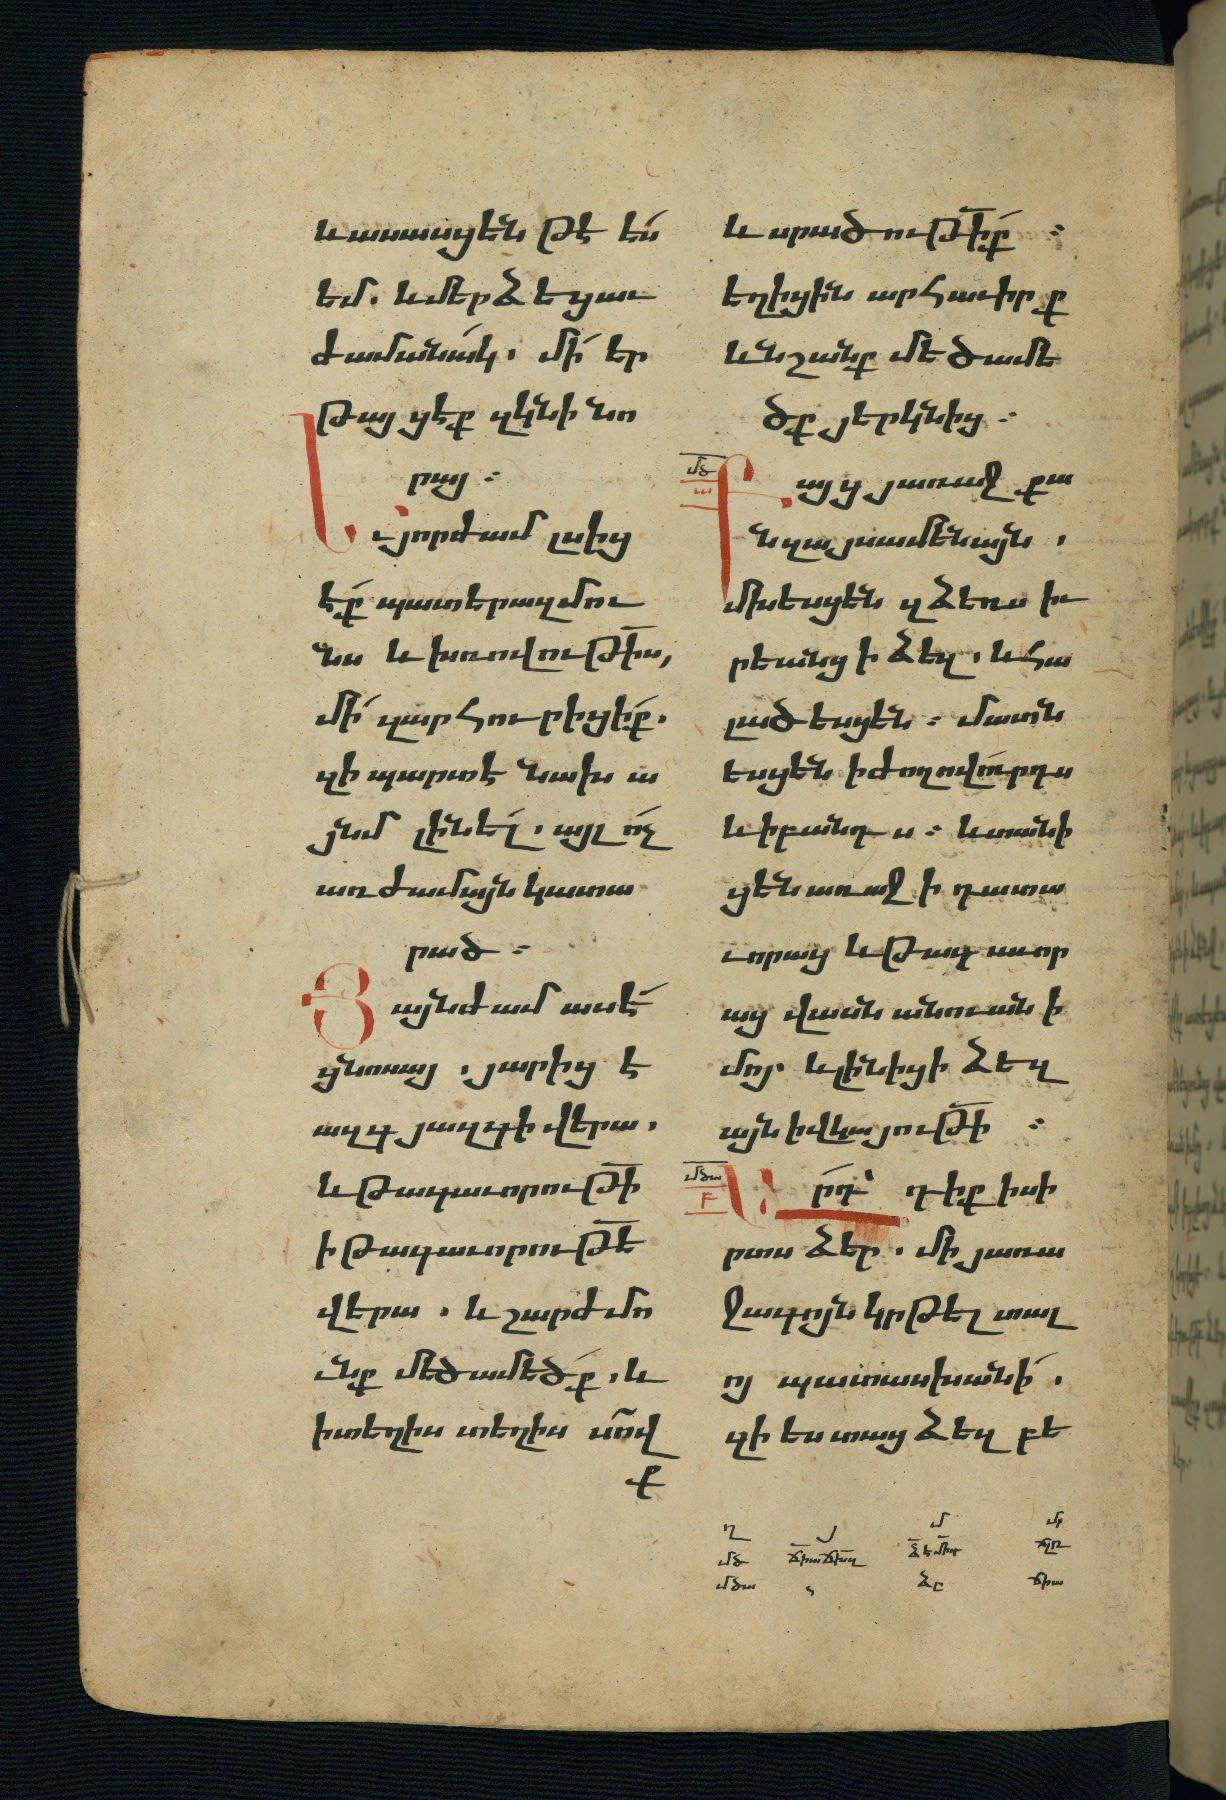 և ասասցեն թէ ես
եմ. և մերձեցաւ
ժամանակ. մի եր
թայցէք զկնի նո
ցայ :
Եւ յորժամ լսից
էք պատերազմու
նս և խռովութիս,
մի զարհուրիցիք.
զի պարտէ նախ ա
յնմ լինել. այլ ոչ
առժամայն կատա
րած :
Յայնժամ ասէ
ցնոսայ. յարիցէ
ազգ յազգի վերա.
և թագաւորութի
ի թագաւորութէ
վերա. և շարժմո
ւնք մեծամեծք. և
ի տեղիս տեղիս սով
ք
և սրածութիք :
եղիցին արհաւիրք
և նշանք մեծամե
ծք յերկնից :
մծ
ա
Բայց յառաջ քա
նզայսամենայն.
մխեսցեն զձեռս իւ
րեանց ի ձեզ. և հա
լածեսցեն : մատն
եսցեն ի ժողովուրդս
և ի բանդս : և տանի
ցեն առաջի դատա
ւորաց և թագաւոր
աց վասն անուան ի
մոյ. և լինիցի ձեզ
այն ի վկայութի :
մծա
բ
Արդ դիք ի սի
րտս ձեր. մի յառա
ջագոյն կրթել տալ
ոյ պատասխանի.
զի ես տաց ձեզ բե
Ղ Յ Մ Մր
մծ
մծա